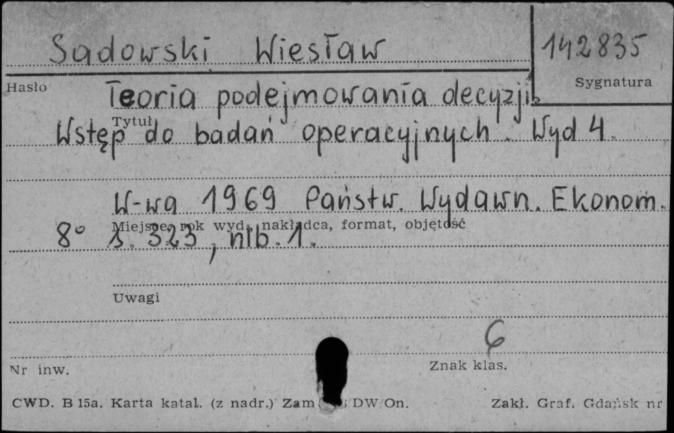 Sadowski Wiesław
142835
Hasło
Sygnatura
Teoria podejmowania decyzji.
Tytuł
Wstęp do badań operacyjnych. Wyd 4.
W-wa 1969 Państw. Wydawn. Ekonom.
Miejsce, rok wyd., nakładca, format, objętość
8° s. 323, nlb. 1.
Uwagi
6
Nr inw.
Znak klas.
CWD. B 15a. Karta katal. (z nadr.) Zam DW On.
Zakł. Graf. Gdańsk nr